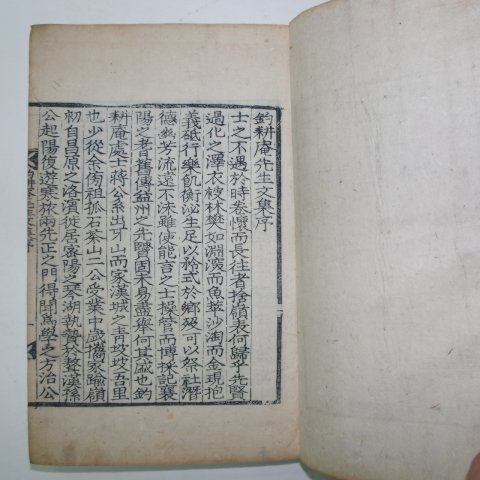 釣耕庵先生文集序
士之不遇於時卷懷而長往者捨嶺表何歸乎先賢
過化之澤衣被林樊如淵深而魚萃沙淘而金現抱
義砥行樂飢衡泌生足以矜式於鄉殁可以祭社潛
德幽芳流遠不沬雖使能言之士操管而博採記襄
陽之耆舊傳益州之先賢固未易盡擧何其盛也釣
耕庵處士蔣公系出牙山而家漢城之靑坡坡吾里
也少從余傍祖孤石茶山二公受業中歲擕家踰嶺
初自昌原之洛濱徙居密陽之琴湖執贄於聱漢孫
公起陽復遊寒旅兩先正之門得聞爲學之方治公